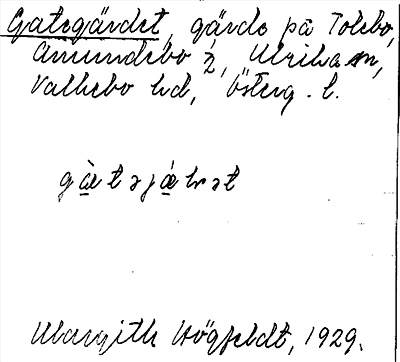 Gategärdet, gärde på Tolebo,
Amundebo 2, Ulrika sn,
Valkebo hd, Österg. l.
gä̀tǝjä́ṛǝt
Margith Högfeldt, 1929.